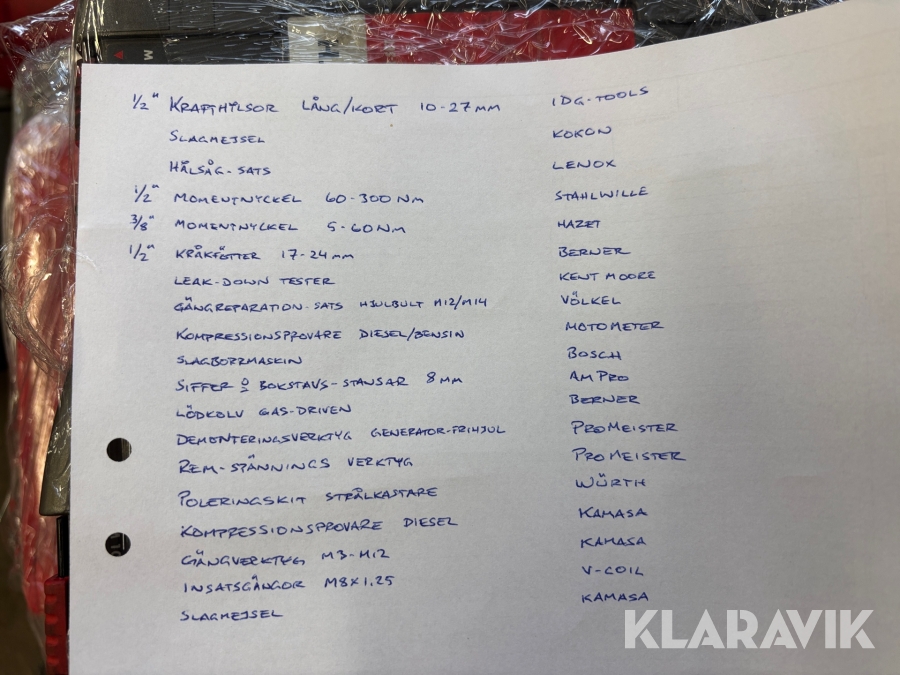 1/2" KRAFTHYLSOR LÅNG/KORT 10-27MM IDG-TOOLS
SLAGMEJSEL KOKON
HÅLSÅG-SATS LENOX
1/2" MOMENTNYCKEL 60-300 NM STAHLWILLE
3/8" MOMENTNYCKEL 5-60NM HAZET
1/2" KRÅKFÖTTER 17-24MM BERNER
LEAK-DOWN TESTER KENT MOORE
GÄNGREPARATION-SATS HJULBULT M12/M14 VÖLKEL
KOMPRESSIONSPROVARE DIESEL/BENSIN MOTOMETER
SLAGBORRMASKIN BOSCH
SIFFER & BOKSTAVS-STANSAR 8MM AMPRO
LÖDKOLV GAS-DRIVEN BERNER
DEMONTERINGSVERKTYG GENERATOR-FRIHJUL PROMEISTER
REM-SPÄNNINGS VERKTYG PROMEISTER
POLERINGSKIT STRÅLKASTARE WÜRTH
KOMPRESSIONSPROVARE DIESEL KAMASA
GÄNGVERKTYG M3-M12 KAMASA
INSATSGÄNGOR M8X1.25 V-COIL
SLAGMEJSEL KAMASA
KLARAVIK